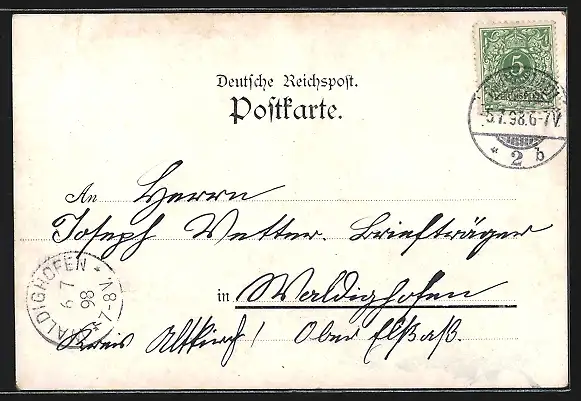 Deutsche Reichspost.
Postkarte.
5
5.7.98.6-7V.
* 2 b
An Herrn
Joseph Vetter. Briefträger
in Waldighofen
Kreis Altkirch / Ober Elsaß.
WALDIGHOFEN *
6 7
98
*7-8V